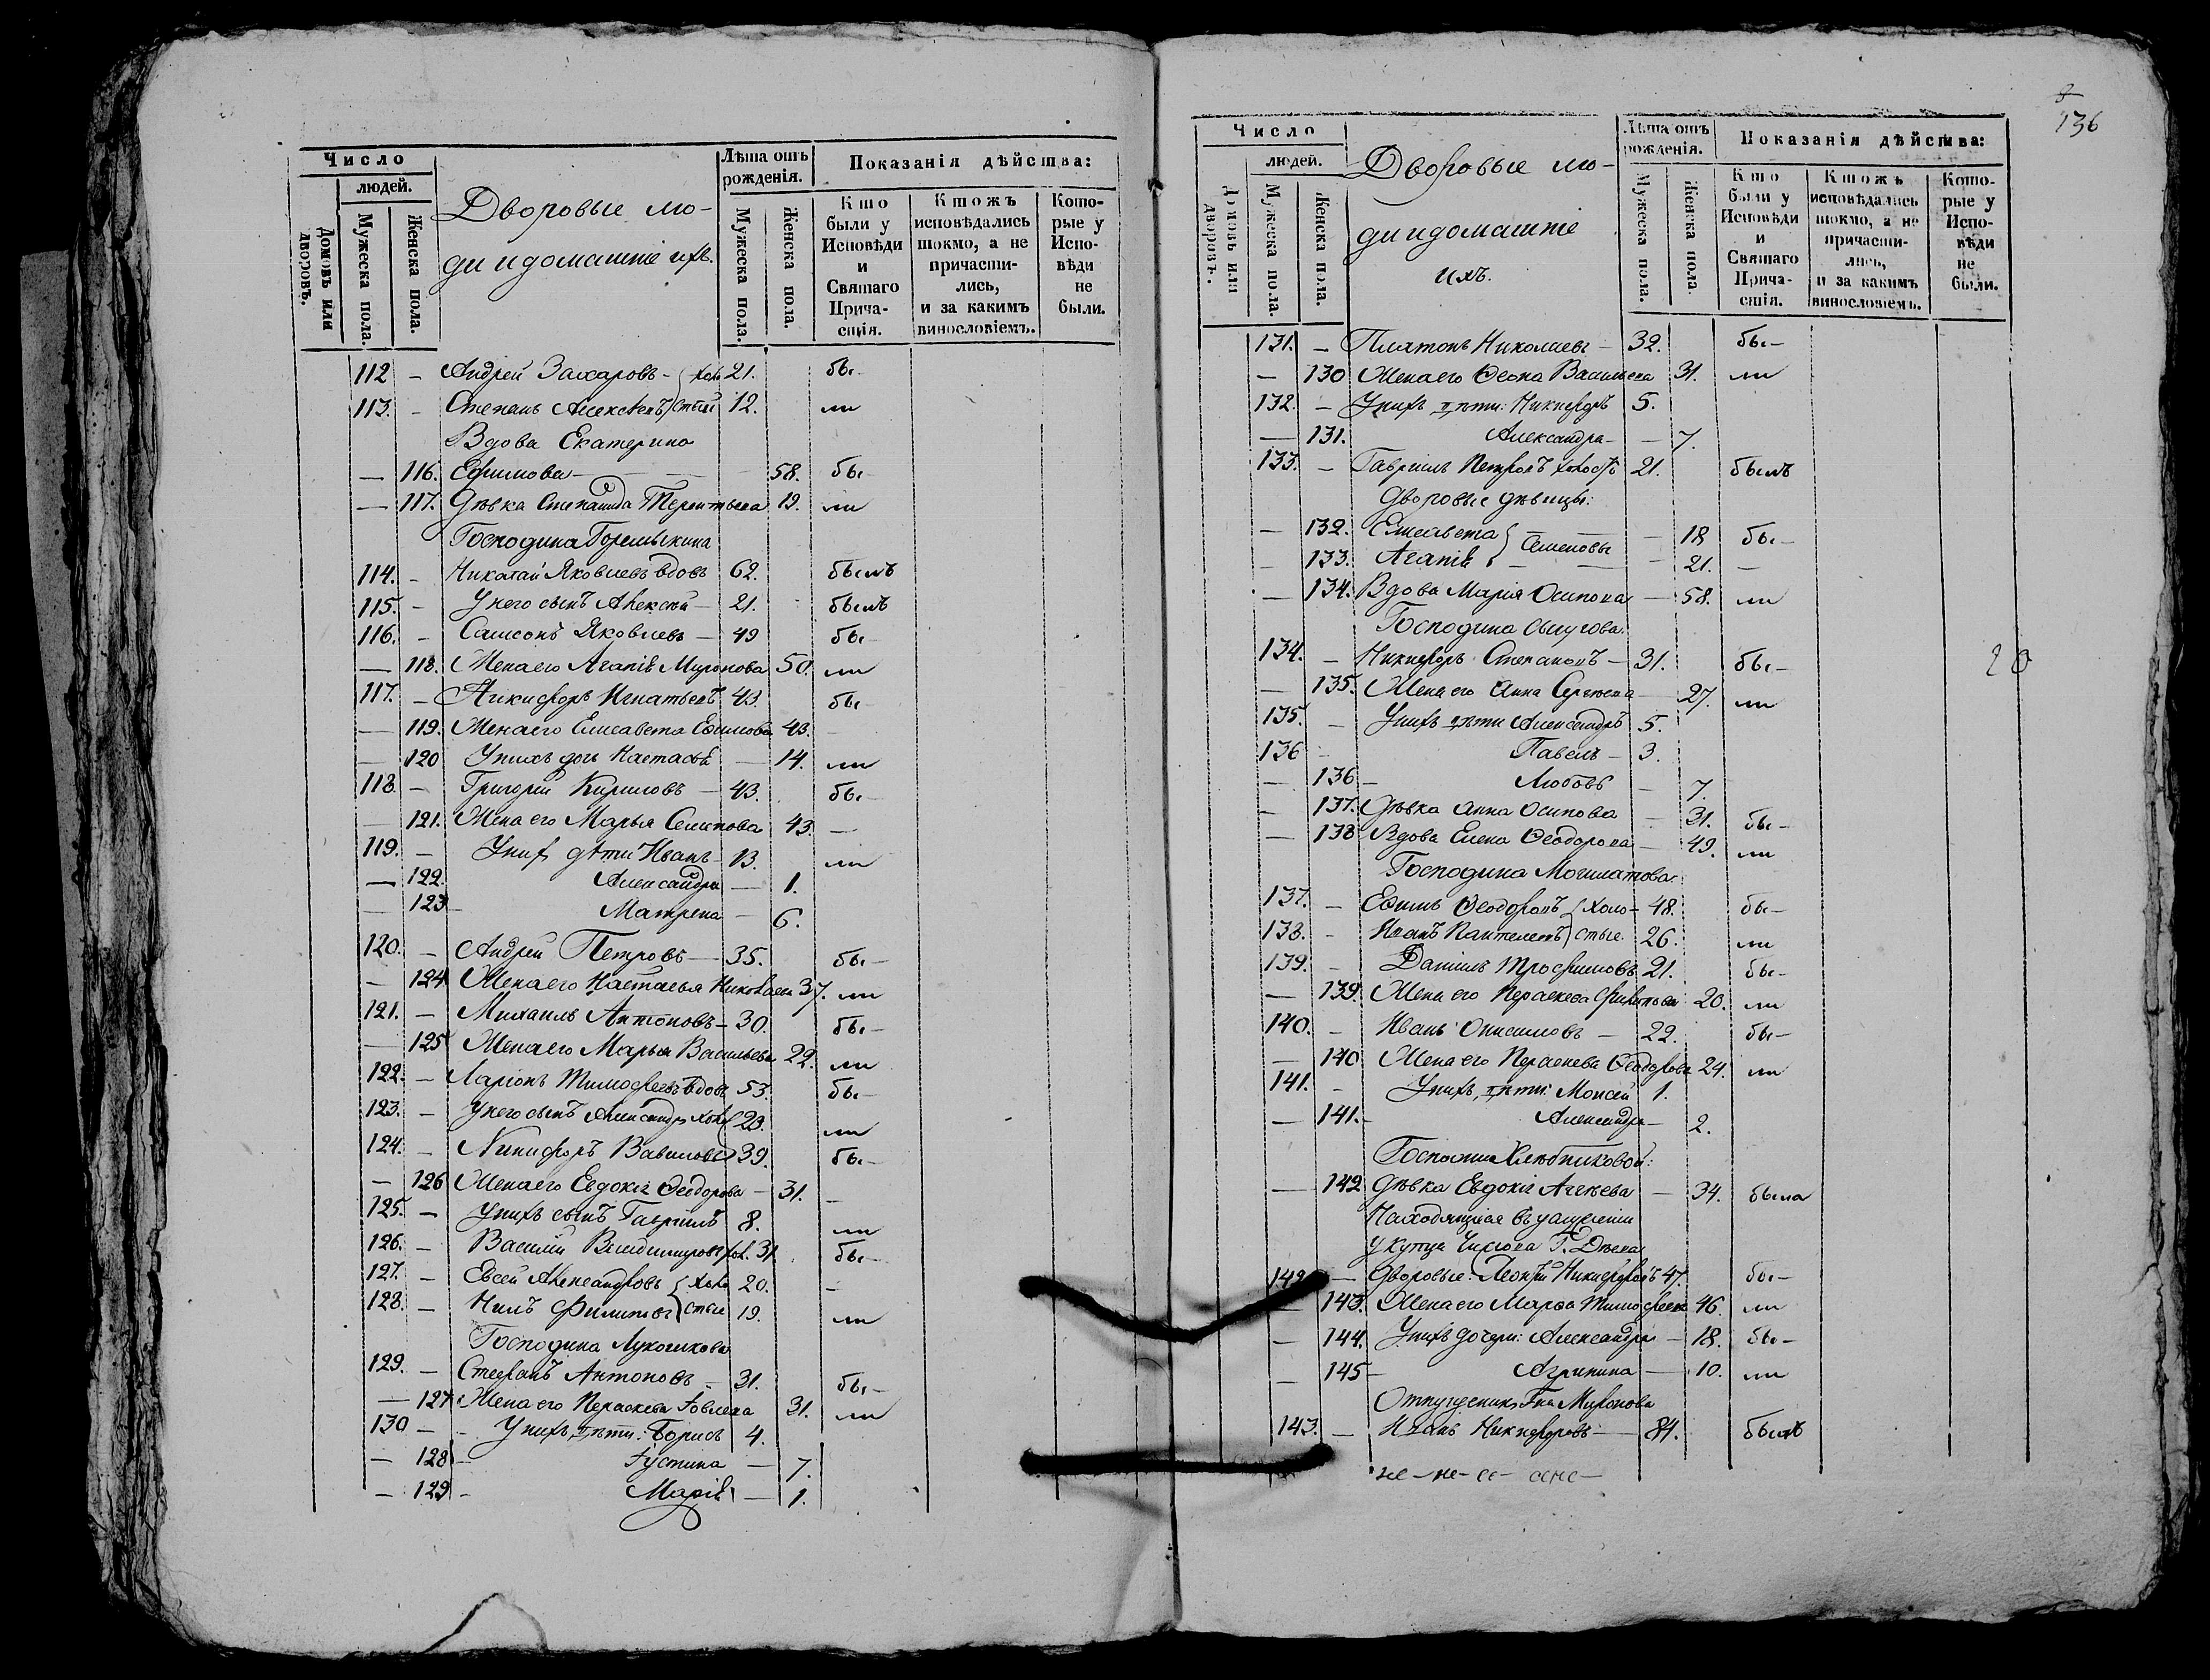 Число
людей.
Домовъ или дворовъ.
Мужеска пола.
Женска пола.
Дворовые лю-
ди и домашніе ихъ.
Лѣта отъ рожденія.
Мужеска пола.
Женска пола.
Показанія дѣйства:
Кто были у Исповѣди и Святаго Причастія.
Ктожъ исповѣдались токмо, а не причастились, и за какимъ винословіемъ.
Которые у Исповѣди не были.
112 – Андрей Захаровъ – 21. бы–
113. – Степанъ Алексѣевъ 12. ли
Вдова Екатерина
– 116. Ефимова – 58. бы–
– 117. Дѣвка Степанида Терентьева 19. ли
Господина Горемыкина
114. – Яковлевъ вдовъ 62. былъ
115. – У него сынъ Алексѣй – 21. былъ
116. – Самсонъ Яковлевъ – 49 бы–
– 118. Жена его Агапія Миронова 50. ли
117. – Игнатьевъ 43. бы–
– 119. Жена его Елисавета Ефимова 43. –
– 120 У нихъ дочь Настасья – 14. ли
118. – Григорій Кириловъ – 43. бы–
– 121. Жена его Марья Семенова 43. –
119. – У нихъ дѣти Иванъ – 13. ли
– 122. Александра – 1.
– 123 – Матрена – 6.
120. – Андрей Петровъ – 35. бы–
– 124 Жена его Настасья Николаева 37. ли
121. – Михаилъ Антоновъ – 30. бы–
– 125 Жена его Марья Васильева 22. ли
122. – Ларіонъ Тимофеевъ вдовъ 53. бы–
123. – У него сынъ Александръ хол 23. ли
124. – Никифоръ Вавиловъ 39. бы–
– 126 Жена его Евдокія Ѳеодорова – 31. –
125. – У нихъ сынъ Гавріилъ 8. ли
126. – Василій хол. 31. бы–
127. – Евсей Александровъ холо 20. –
128. – Нилъ Филиповъ стые 19. ли
Господина Лукошкова
129. – Стефанъ Антоновъ – 31. бы–
– 127 Жена его Пераскева Іовлева 31. ли
130 – У нихъ дѣти: Борисъ 4.
– 128 – Іустина – 7.
– 129 – Марія – 1.
136
Число
людей.
Домовъ или дворовъ.
Мужеска пола.
Женска пола.
Дворовые лю-
ди и домашніе
ихъ.
Лѣта отъ рожденія.
Мужеска пола.
Женска пола.
Показанія дѣйства:
Кто были у Исповѣди и Святаго Причастія.
Ктожъ исповѣдались токмо, а не причастились, и за какимъ винословіемъ.
Которые у Исповѣди не были.
131. – Платонъ Николаевъ – 32. бы–
– 130 Жена его Ѳеона Васильева 31. ли
132. – У нихъ дѣти: Никифоръ 5.
– 131. Александра – – 7.
133. – Гавріилъ Петровъ холостъ 21. былъ
Дворовые дѣвицы:
– 132. Елисавета – 18 бы–
– 133. Агапія Семеновы – 21. –
– 134. Вдова Марія Осипова – 58. ли
Господина
134. – Никифоръ Степановъ – 31. бы–
– 135. Жена его Анна Сергѣева – 27. ли
135. – У нихъ дѣти Александръ 5.
136 – Павелъ – 3.
– 136 – Любовь – 7.
– 137. Дѣвка Анна Осипова – 31. бы–
– 138 Вдова Елена Ѳеодорова – 49. ли
Господина
137. – Ефимъ Ѳеодоровъ холо – 48. бы–
138. – Иванъ Пантелеевъ стые. 26. ли
139. – Даніилъ Трофимовъ 21. бы–
– 139. Жена его Пераскева Филипьева 20. ли
140. – Иванъ Онисимовъ – 22. бы–
– 140 Жена его Пераскева Ѳеодорова 24. ли
141. – У нихъ дѣти: Моисей 1.
– 141. – Александра – 2.
Госпожи Хлѣбниковой:
– 142 Дѣвка Евдокія Агѣева – 34. была
Находящіеся въ услуженіи
у купца
142 – Дворовые: Леонтій Никифоровъ 47. бы–
– 143. Жена его Марфа Тимофеева 46. ли
– 144. У нихъ дочери: Александра – 18. бы–
– 145 – Агрипина – 10. ли
Отпущеникъ Гна Миронова
143. – Иванъ Никифоровъ – 84. былъ